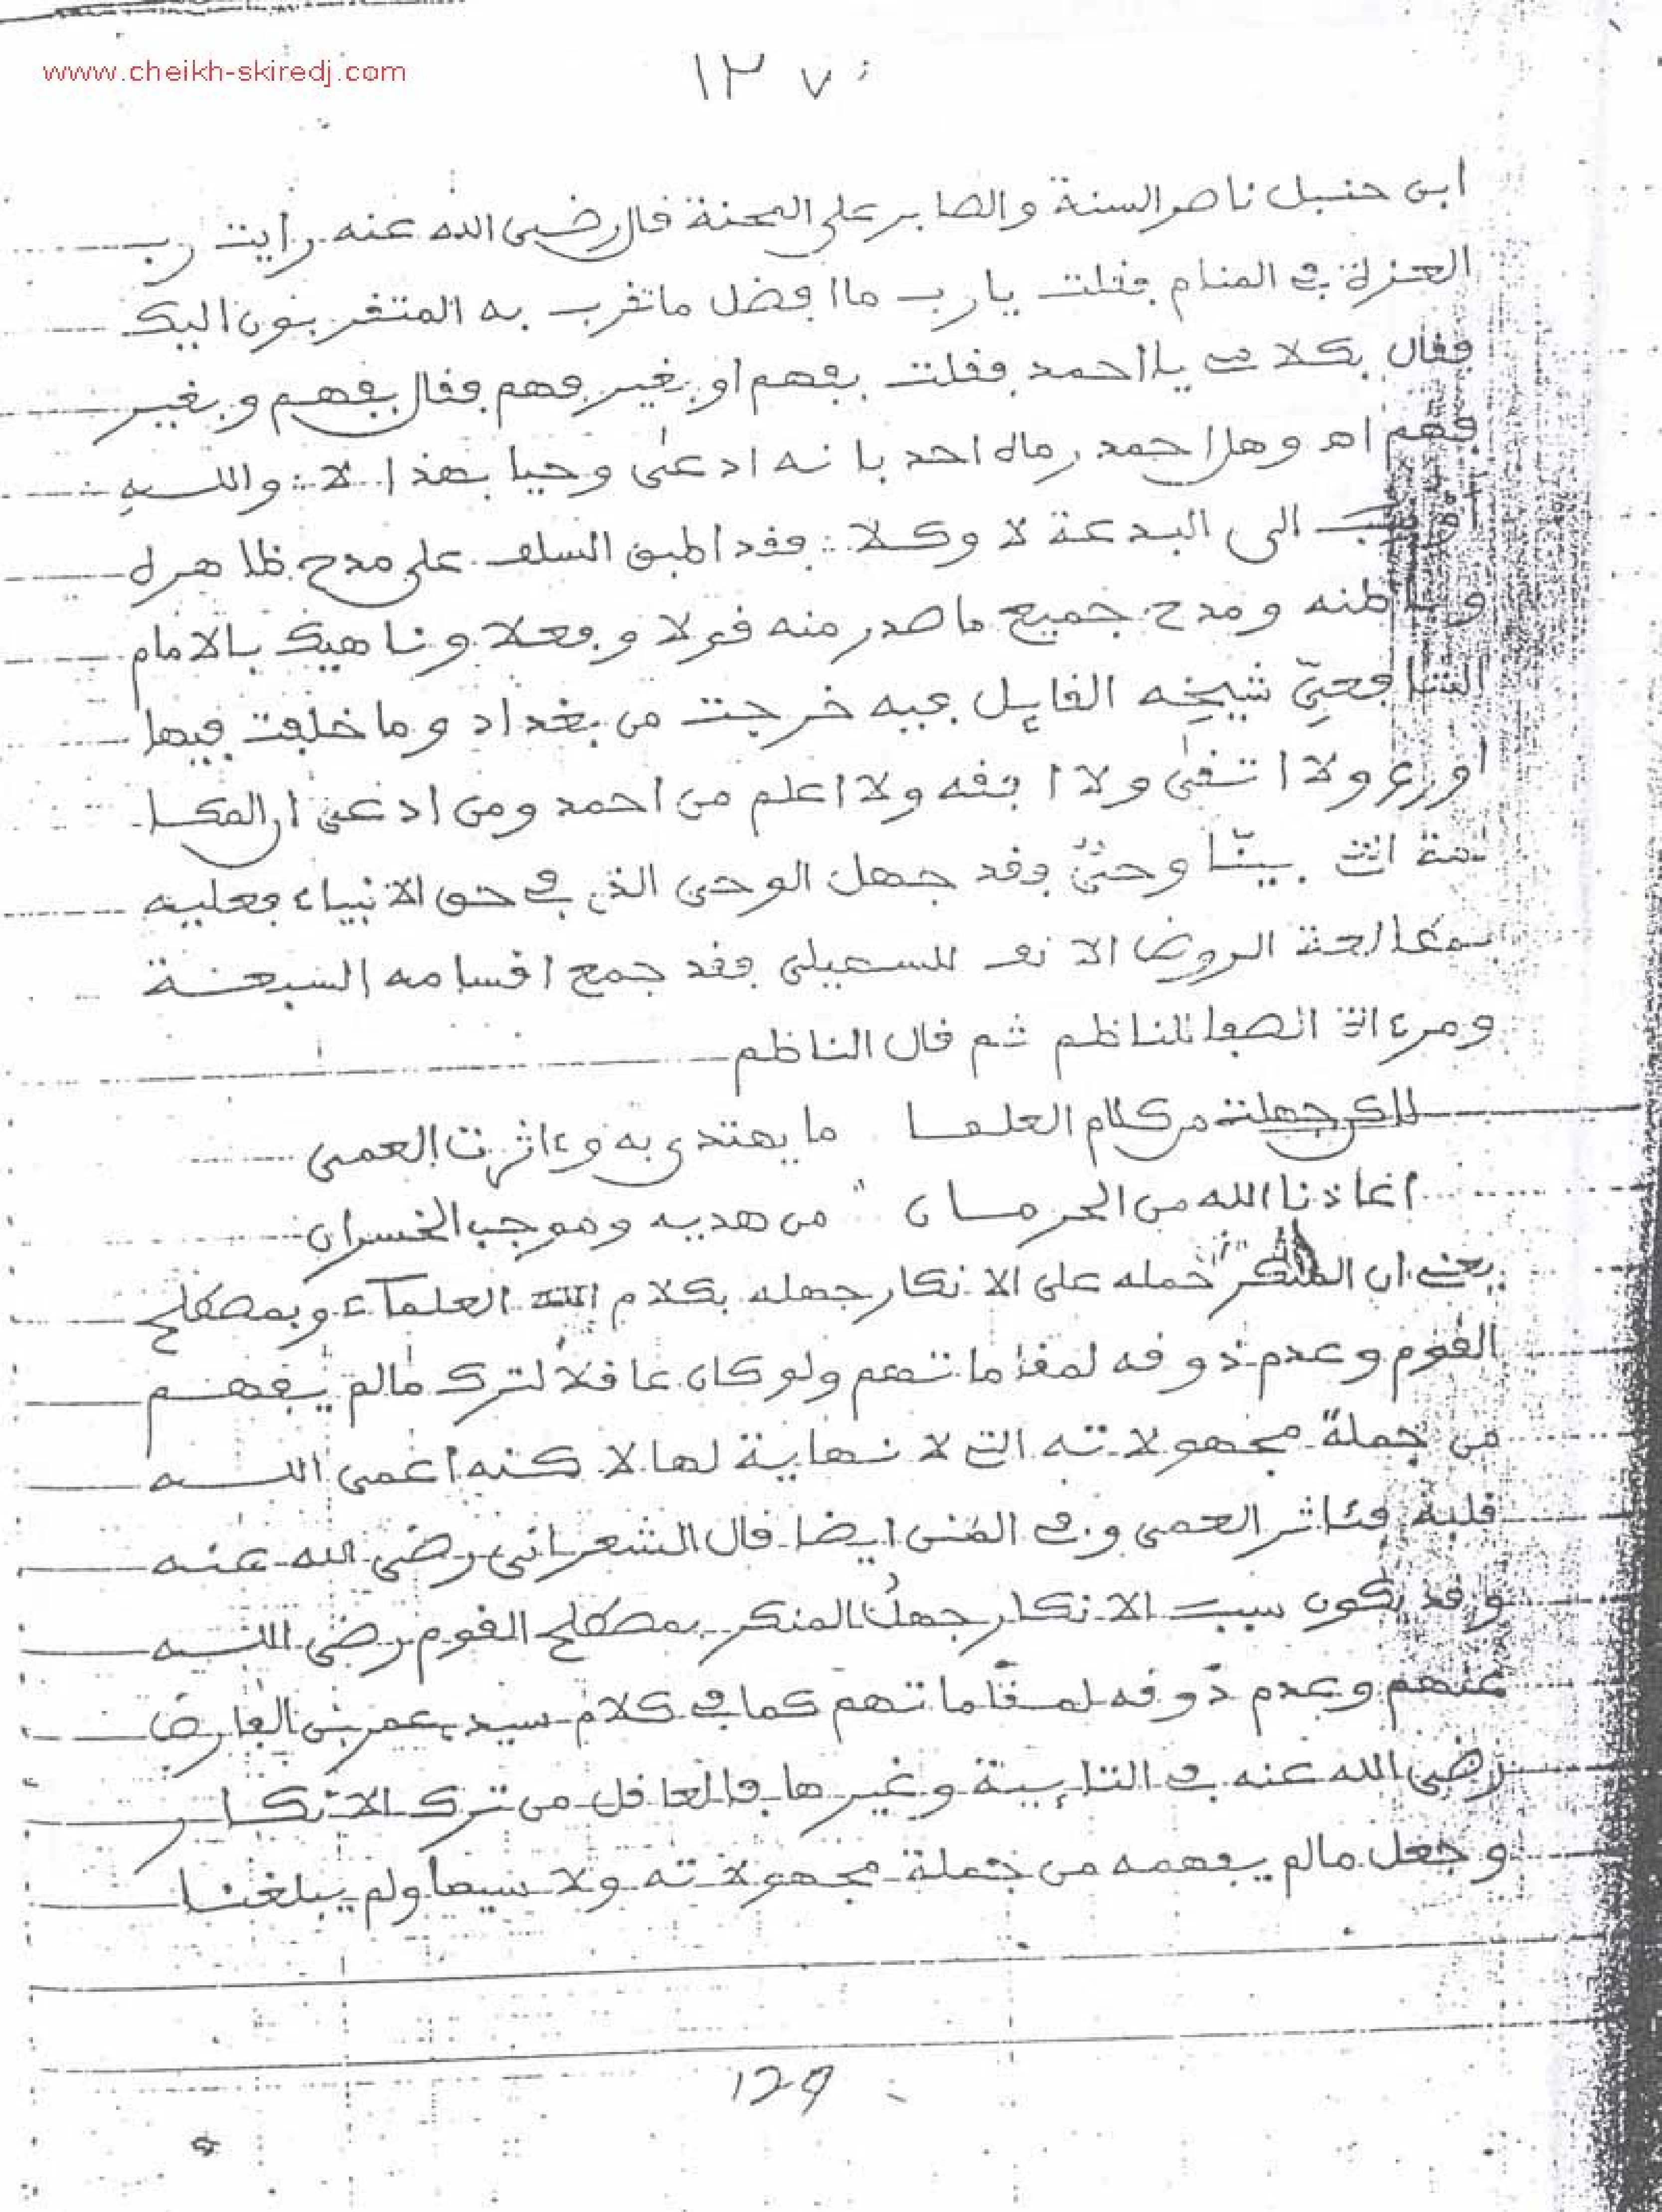 www.cheikh-skiredj.com
١٣٧
ابن حنبل ناصر السنة والصابر على المحنة قال رضى الله عنه رايت رب
العزة في المنام فقلت يارب ما افضل ما تقرب به المتقربون اليك
فقال بكلامي يا احمد فقلت بفهم او بغير فهم فقال بفهم وبغير
فهم اه وهل احمد رماه احد بانه ادعى وحيا بهذا لا والله
الى البدعة لا وكلا فقد اطبق السلف على مدح ظاهره
وباطنه ومدح جميع ما صدر منه قولا وفعلا وناهيك بالامام
الشافعيّ شيخه القايل فيه خرجت من بغداد وما خلفت فيها
اورع ولا اتقى ولا افقه ولا اعلم من احمد ومن ادعى ان المكا
لمة وحيٌ فقد جهل الوحي الذي في حق الانبياء فعليه
بمطالعة الروض الانف للسهيلي فقد جمع اقسامه السبعة
ومرءاة الصفا للناظم ثم قال الناظم
لاكن جهلت من كلام العلما ما يهتدى به وءاثرت العمى
اعاذنا الله من الحرمان من هديه وموجب الخسران
يعني ان المنكر حمله على الانكار جهله بكلام العلماء وبمصطلح
القوم وعدم ذوقه لمقاماتهم ولو كان عاقلا لترك ما لم يفهم
من جملة مجهولاته التي لا نهاية لها لاكنه اعمى الله
قلبه فئاثر العمى وفي المنن ايضا قال الشعراني رضى الله عنه
وقد يكون سبب الانكار جهل المنكر بمصطلح القوم رضى الله
عنهم وعدم ذوقه لمقاماتهم كما في كلام سيدي عمر بن الفارض
رضى الله عنه في التايية وغيرها فالعاقل من ترك الانكار
وجعل ما لم يفهمه من جملة مجهولاته ولا سيما ولم يبلغنا
129